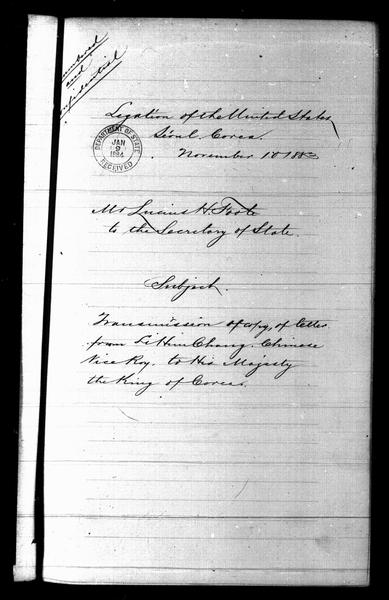 Unnumbered
and
Confidential
Legation of the United States
Séoul, Corea.
November 10 1883
DEPARTMENT OF STATE
JAN
2
1884
RECEIVED
Mr Lucius H. Foote
to the Secretary of State.
Subject.
Transmission of copy, of letter
from Li Hun Chang. Chinese
Vice Roy. to His Majesty
the King of Corea.